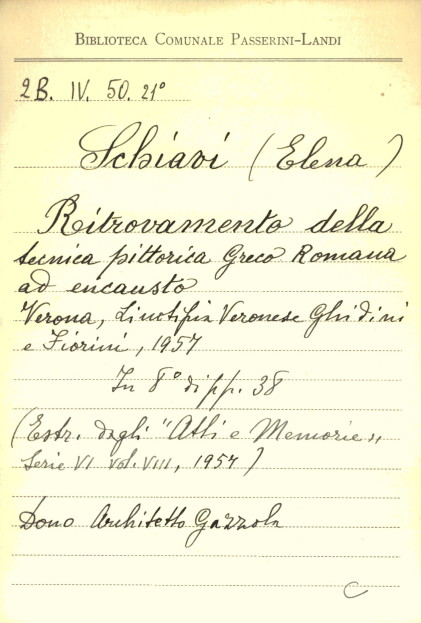 BIBLIOTECA COMUNALE PASSERINI-LANDI
2B. IV. 50. 21°
Schiavi (Elena)
Ritrovamento della
tecnica pittorica Greco Romana
ad encausto
Verona, Linotipia Veronese Ghidini
e Fiorini, 1957
In 8° di pp. 38
(Estr. dagli "Atti e Memorie„
Serie VI vol. VIII, 1957)
Dono Architetto Gazzola
C